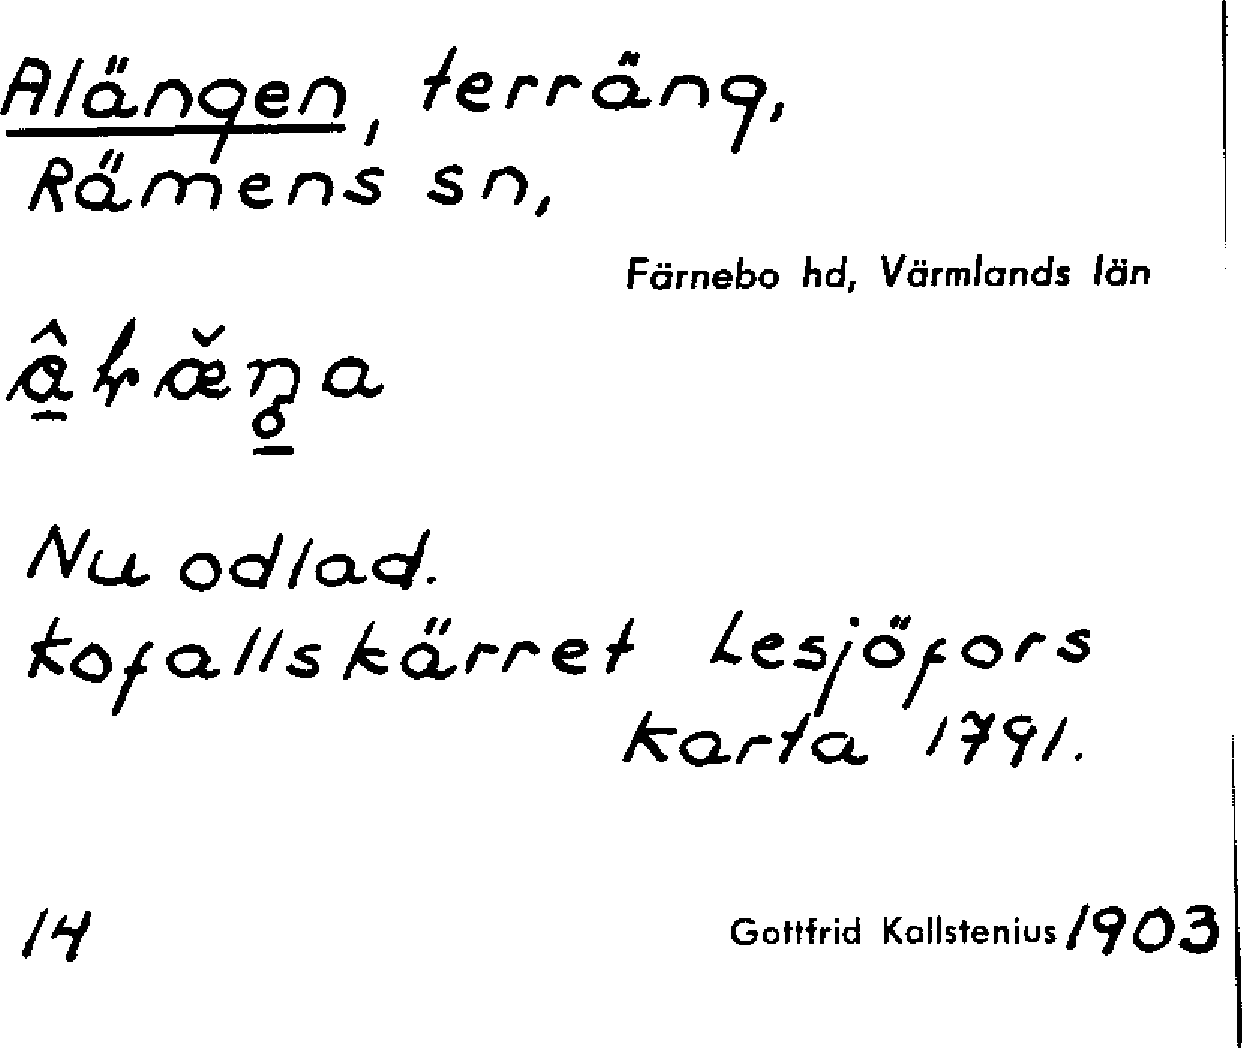 Alängen, terräng,
Rämens sn,
Färnebo hd, Värmlands län
Nu odlad.
Kofallskärret Lesjöfors
karta 1791.
14
Gottfrid Kallstenius 1903